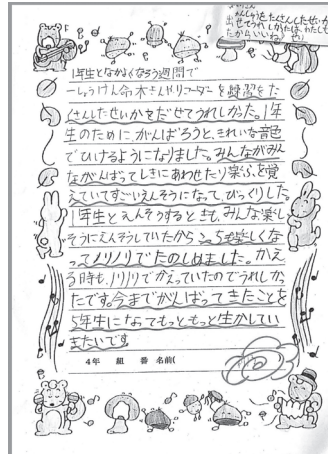 出せてうれしかったね。わたしも
たからいいね
1年生となかよくなろう週間で
一しょうけん命、木きんやリコーダーを練習をた
くさんしたせいかをだせてうれしかった。1年
生のために、がんばろうと、きれいな音色
でひけるようになりました。みんながみん
ながんばってしきにあわせたり楽ふを覚
えていてすごいえんそうになって、びっくりした。
1年生とえんそうするときも、みんな楽し
そうにえんそうしていたからこっちも楽しくな
ってノリノリでたのしめました。かえ
る時も、ノリノリでかえっていたのでうれしかっ
たです。今までがんばってきたことを
5年生になってもっともっと生かしてい
きたいです。
4年 組 番 名前(